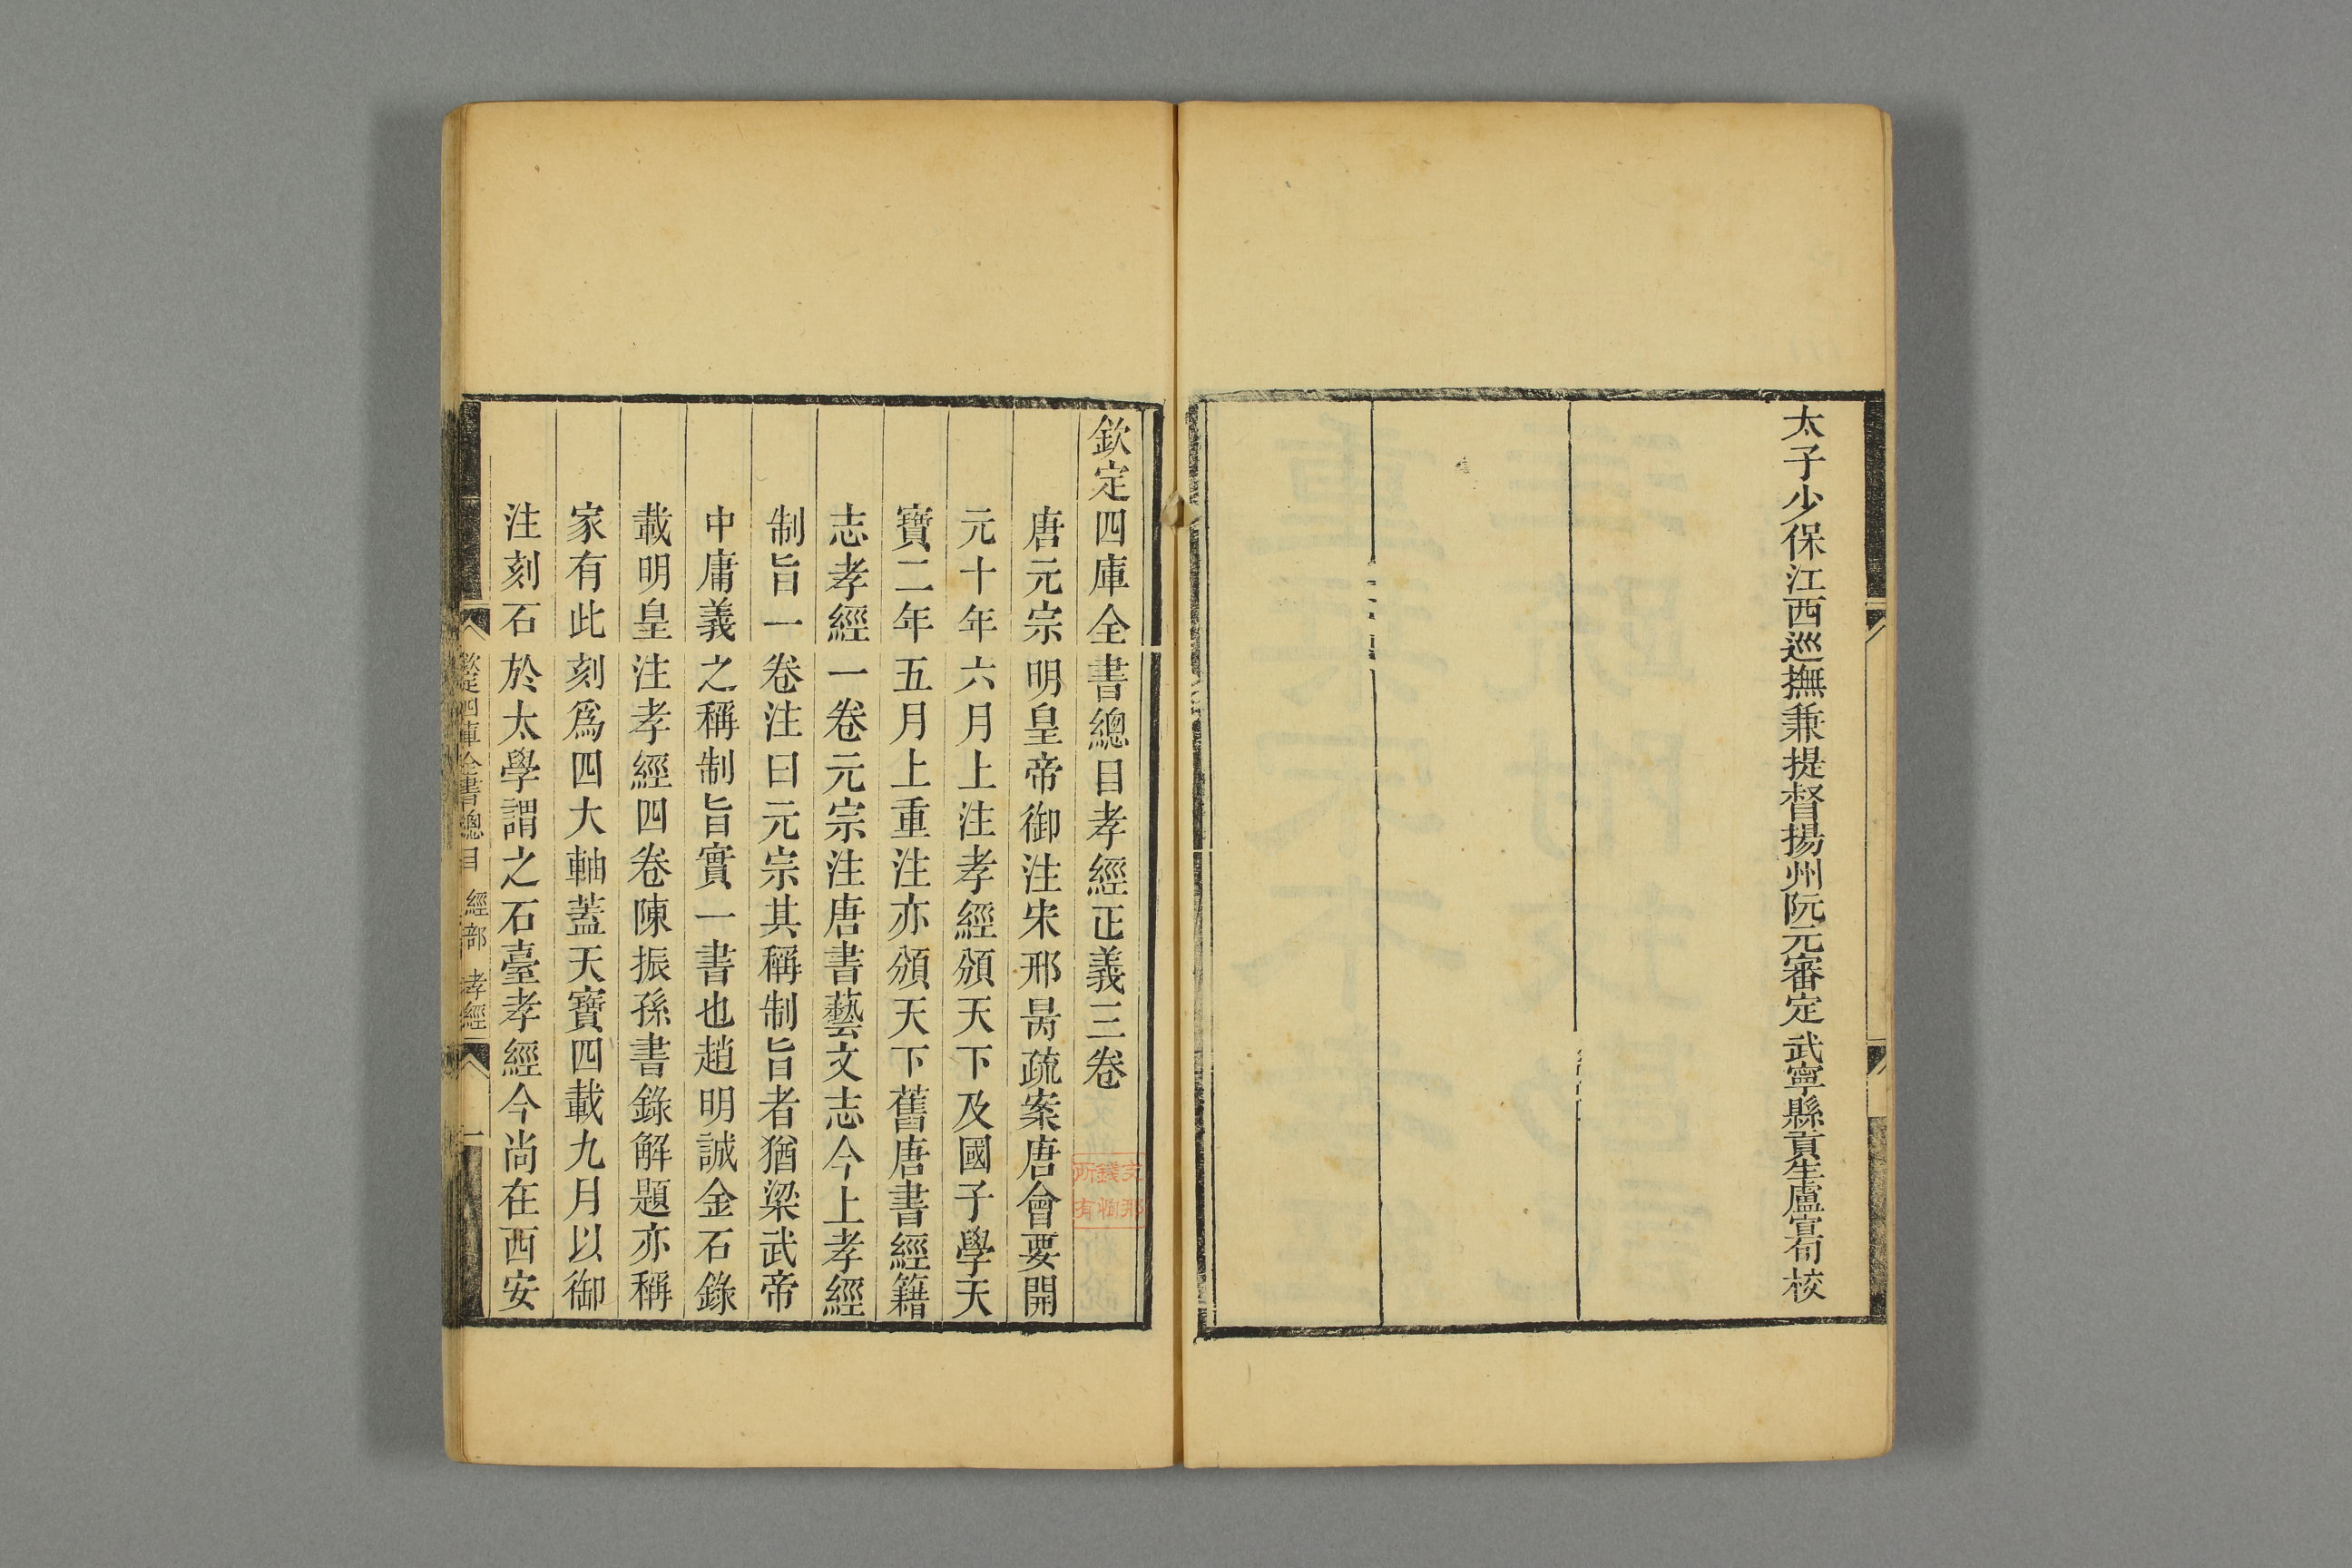 太子少保江西巡撫兼提督揚州阮元審定 武寧縣貢生盧宣旬校
欽定四庫全書總目孝經正義三卷
唐元宗明皇帝御注宋邢昺疏案唐會要開
元十年六月上注孝經頒天下及國子學天
寶二年五月上重注亦頒天下舊唐書經籍
志孝經一卷元宗注唐書藝文志今上孝經
制旨一卷注曰元宗其稱制旨者猶梁武帝
中庸義之稱制旨實一書也趙明誠金石錄
載明皇注孝經四卷陳振孫書錄解題亦稱
家有此刻爲四大軸蓋天寶四載九月以御
注刻石於太學謂之石臺孝經今尚在西安
欽定四庫全書總目 經部 孝經 一